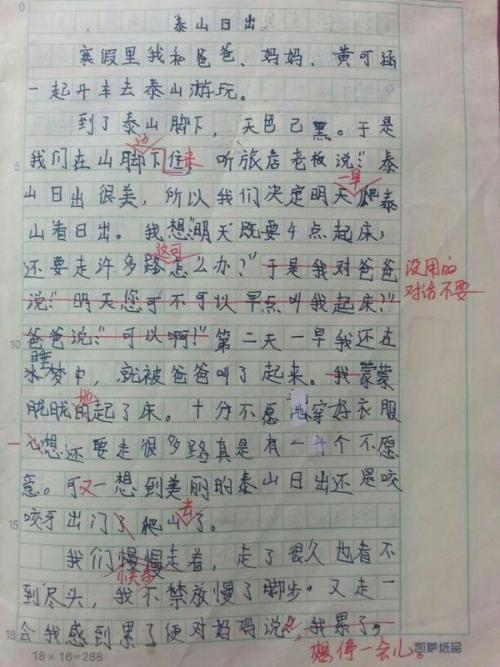 泰山日出
寒假里我和爸爸、妈妈、黄可涵
一起开车去泰山游玩。
到了泰山脚下，天色已黑。于是
边
我们在山脚下住来听旅店老板说:"泰
一早
山日出很美，所以我们决定明天爬泰
山看日出。我想"明天既要4点起床，
这可
还要走许多路怎么办?"于是我对爸爸
没用的
对话不要
说:"明天您可不可以早点叫我起床?"
爸爸说:"可以啊!"第二天一早我还在
睡梦中，就被爸爸叫了起来。我蒙蒙
地
胧胧的起了床。十分不愿地穿好衣服
心想还要走很多路真是有一千个不愿
意。可又一想到美丽的泰山日出还是咬
去
咬牙出门了爬山了。
我们慢慢走着，走了很久也看不
到尽头，我不禁放慢了脚步。又走一
会我感到累了便对妈妈说，我累了，
想停一会儿。
5
10
15
18
18×16=288
凯萨纸品